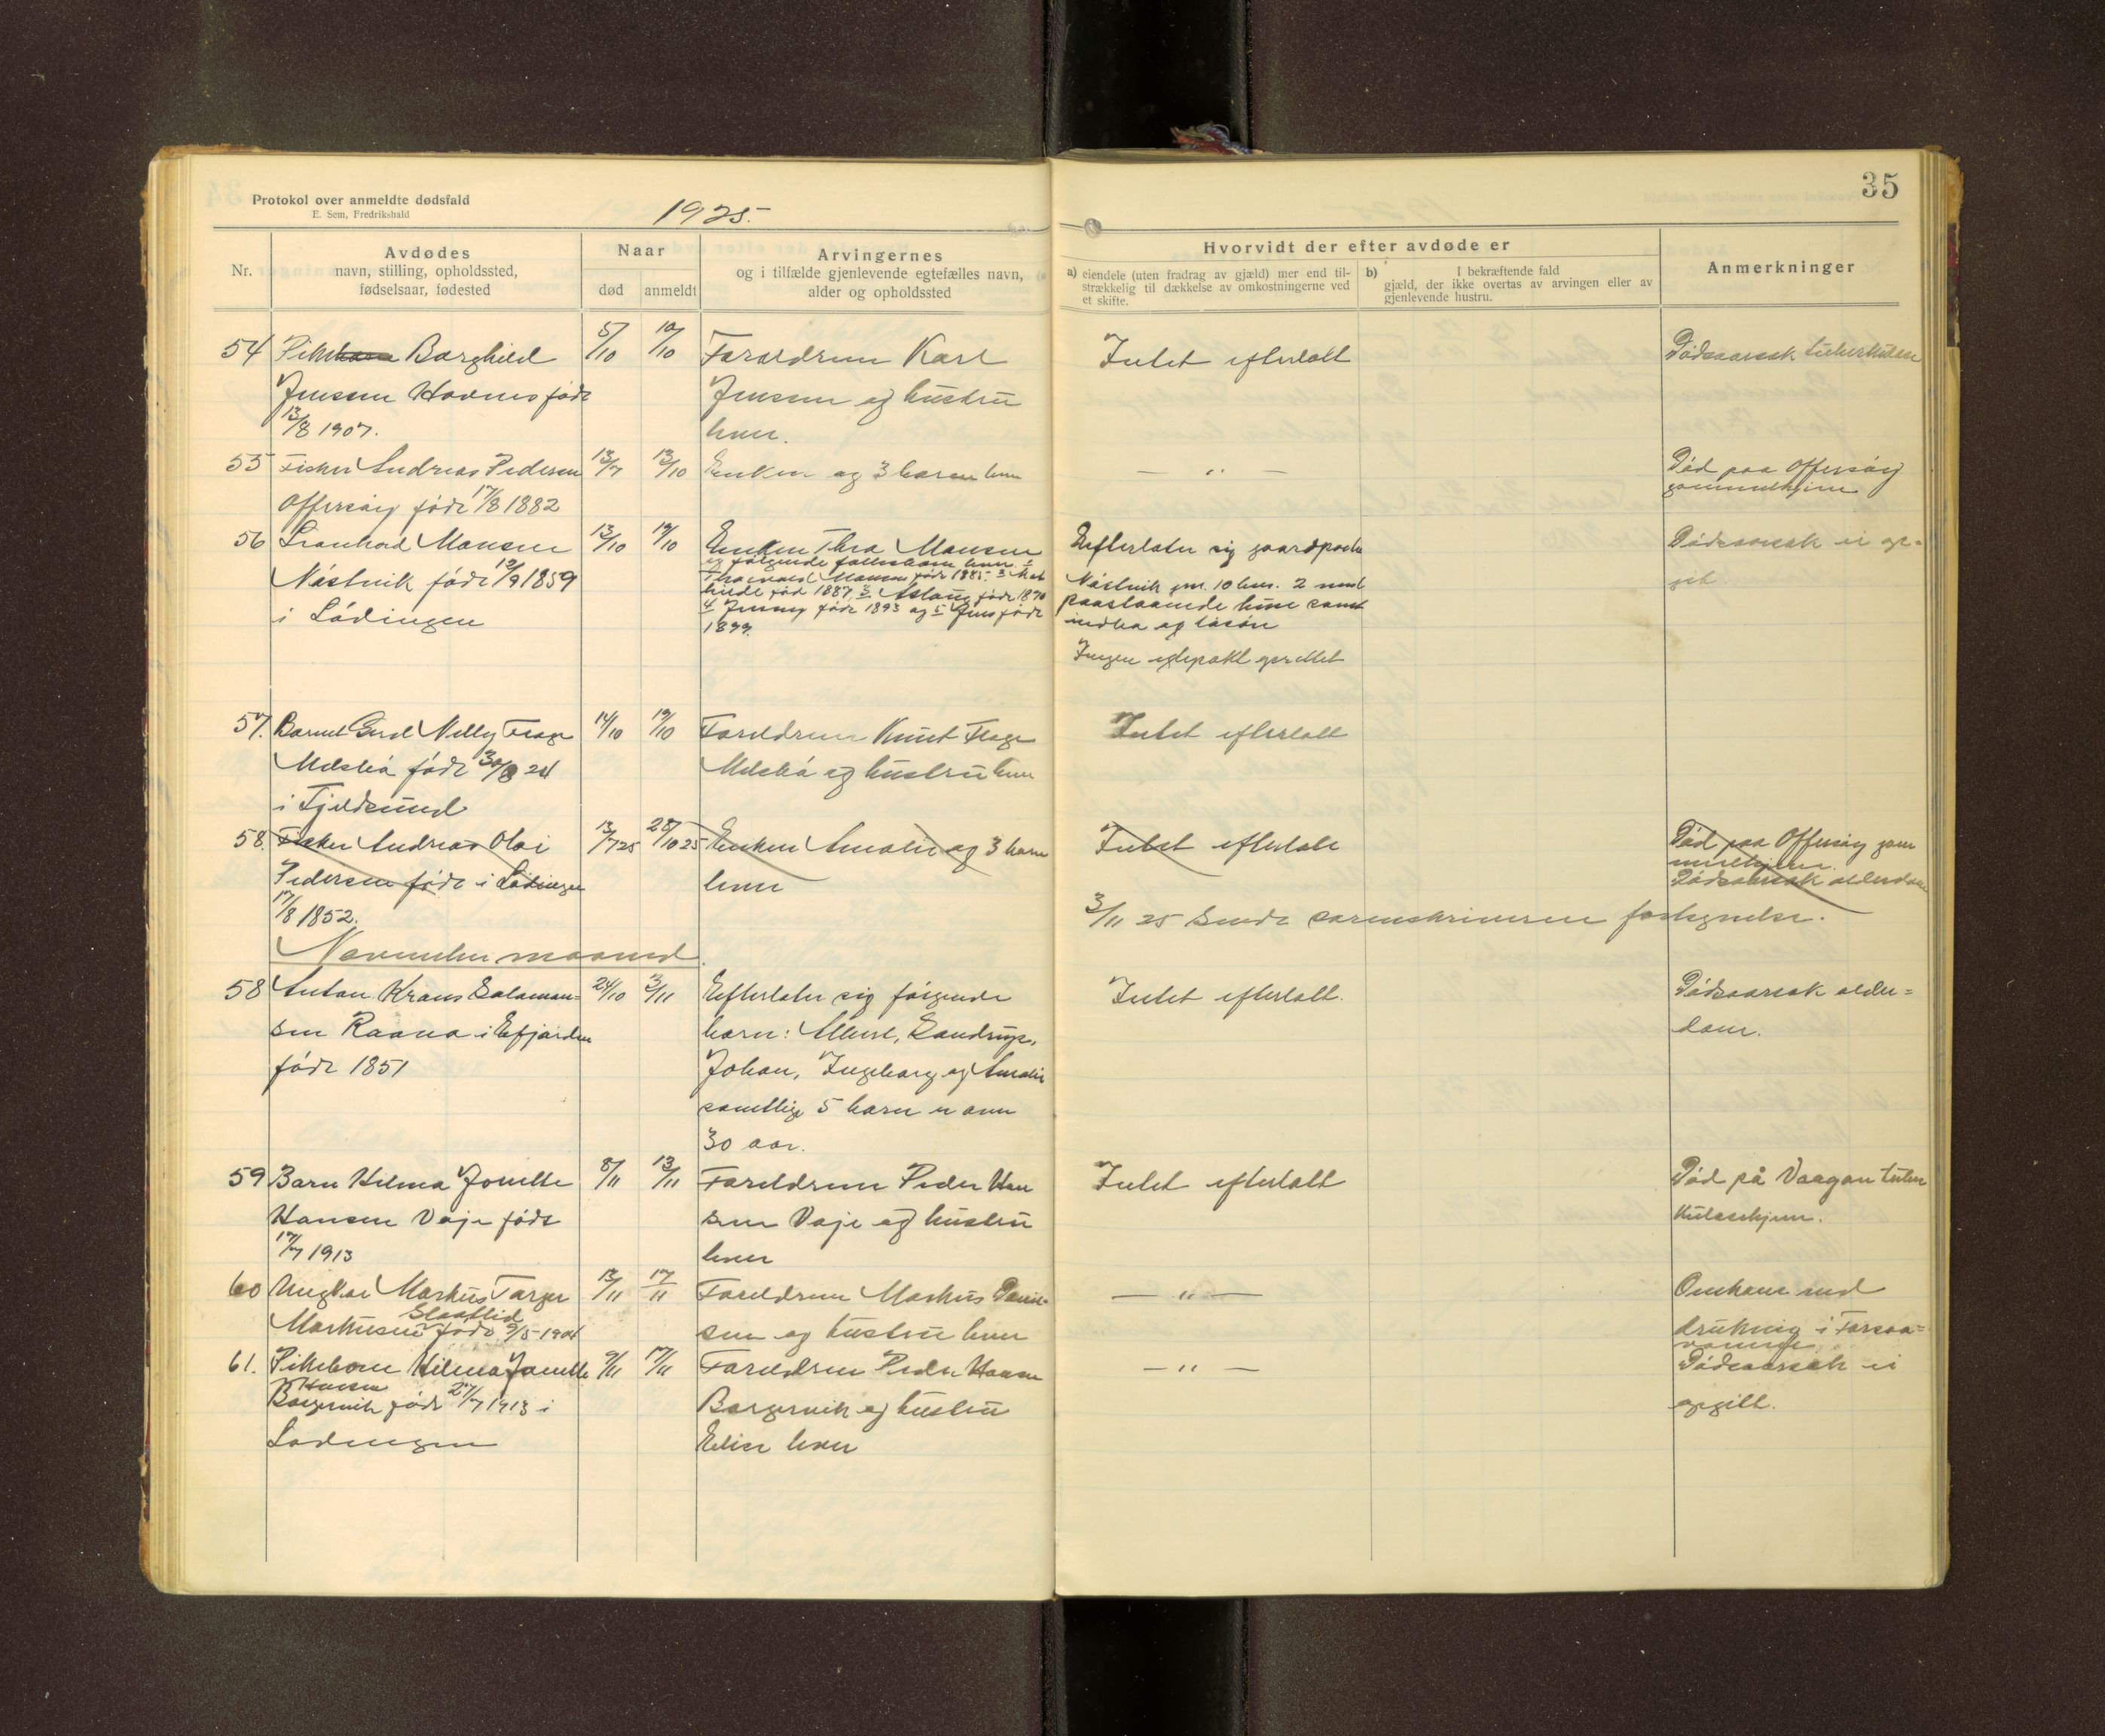 35
Protokol over anmeldte dødsfald
E. Sem, Fredrikshald
1925.
Nr.
Avdødes
navn, stilling, opholdssted,
fødselsaar, fødested
Naar
død
anmeldt
Arvingernes
og i tilfælde gjenlevende egtefælles navn,
alder og opholdssted
Hvorvidt der efter avdøde er
a) eiendele (uten fradrag av gjæld) mer end til-
strækkelig til dækkelse av omkostningerne ved
et skifte.
b) I bekræftende fald
gjæld, der ikke overtas av arvingen eller av
gjenlevende hustru.
Anmerkninger
54 Borghild 5/10 10/10 Forældrene Karl Intet efterlatt Dødsaarsak
Jensen født Jensen og hustru
13/8 1907. lever.
55 Fisker Andreas Pedersen 13/7 13/10 Enken og 3 barn lever — „ — Død paa Offersøy
Offersøy født 17/8 1882 gammelhjem
56 Mansen 13/10 19/10 Enken Thea Mansen Efterlater sig Dødsaarsak ei op=
og følgende fællesbarn lever
Næstvik født 1859 født 1885 Næstvik 2 git
født 1887, født 1890
i Lødingen 4 Jenny født 1893 og 5 Jens født paastaaende
1899. indbo og løsøre
Ingen oprettet
57. Barnet Gerd Nelly 14/10 19/10 Foreldrene Knut Intet efterlatt
født 30/8 24 og hustru lever
i Tjeldsund
58. Fisker Andreas Olai 13/7 25 28/10 25 Enken Amalie og 3 barn Intet efterlatt Død paa Offersøy gam
Pedersen født i Lødingen lever melhjem.
Dødsaarsak alderdom
17/8 1852. 3/11 25 sendt sorenskriveren fortegnelse.
November maaned
58 Anton Kraus Salomon= 24/10 3/11 Efterlater sig følgende Intet efterlatt. Dødsaarsak alder=
sen Raana i Efjorden barn: Albert, Sandrup, dom.
født 1851 Johan, Ingeborg og Amalie
samtlige 5 barn er over
30 aar.
59 Barn Hilma Jonette 8/11 13/11 Foreldrene Peder Han Intet efterlatt Død på Vaagan tuber
Hansen Vaje født sen Vaje og hustru kulosehjem.
17/7 1913 lever
60 Ungkar Markus Torger 13/11 17/11 Foreldrene Markus — „ — Omkom ved
Markusen født 9/5 1904 sen og hustru lever drukning i
61. Pikebarn Hilma Jonette 9/11 17/11 Foreldrene Peder Hansen — „ — Dødsaarsak ei
Hansen
Borgervik født 27/7 1913 i Borgervik og hustru opgitt.
Lødingen Elise lever